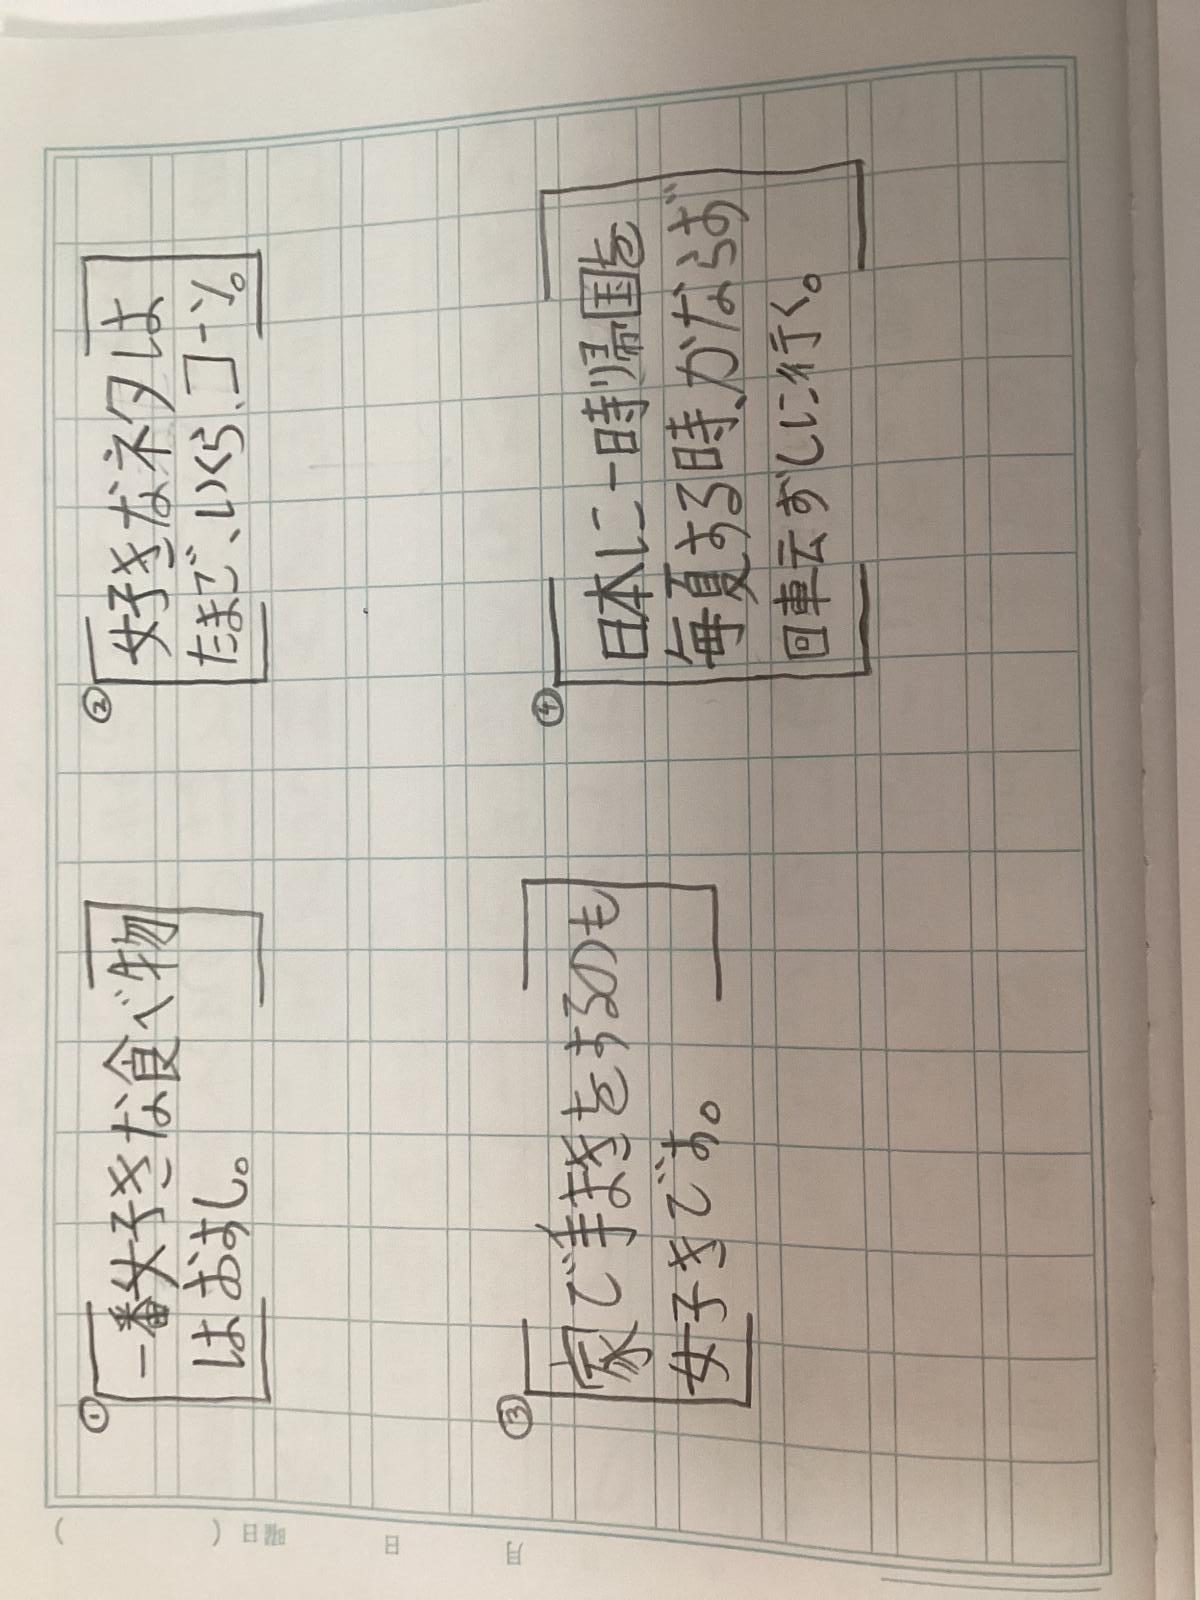 ①
一番好きな食べ物
はおすし。
②
好きなネタは
たまご、いくら、コーン。
③
家で手まきをするのも
好きです。
④
日本に一時帰国を
毎夏する時、かならず
回転ずしに行く。
月 日 曜日 ( )